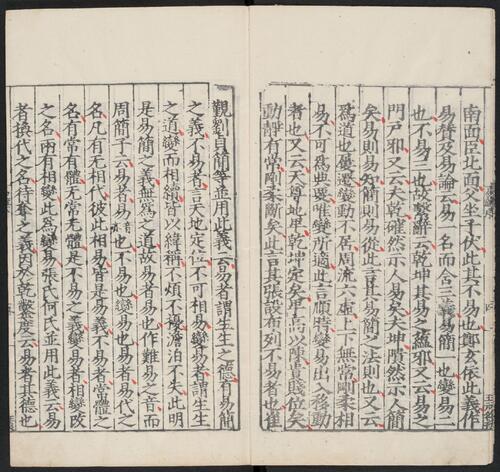 南面臣北面父坐子伏此其不易也鄭玄依此義作
易賛及易論云易一名而含三義易簡一也變易二
也不易三也故繫辭云乾坤其易之藴邪又云易之
門戶邪又云夫乾確然示人易矣夫坤隤然示人簡
矣易則易知簡則易從此言其易簡之法則也又云
爲道也屢遷變動不居周流六虛上下無常剛柔相
易不可爲典要唯變所適此言順時變易出入移動
者也又云天尊地卑乾坤定矣卑高以陳貴賤位矣
動靜有常剛柔斷矣此言其張設布列不易者也崔
觀劉貞簡等並用此義云易者謂生生之德有易簡
之義不易者言天地定位不可相易變易者謂生生
之道變而相續皆以緯稱不煩不擾澹泊不失此明
是易簡之義無爲之道故易者易也作難易之音而
周簡子云易者易音亦也不易也變易也易者易代之
名凡有无相代彼此相易皆是易義不易者常體之
名有常有體无常无體是不易之義變易者相變改
之名兩有相變此爲變易張氏何氏並用此義云易
者換代之名待奪之義因於乾鑿度云易者其德也